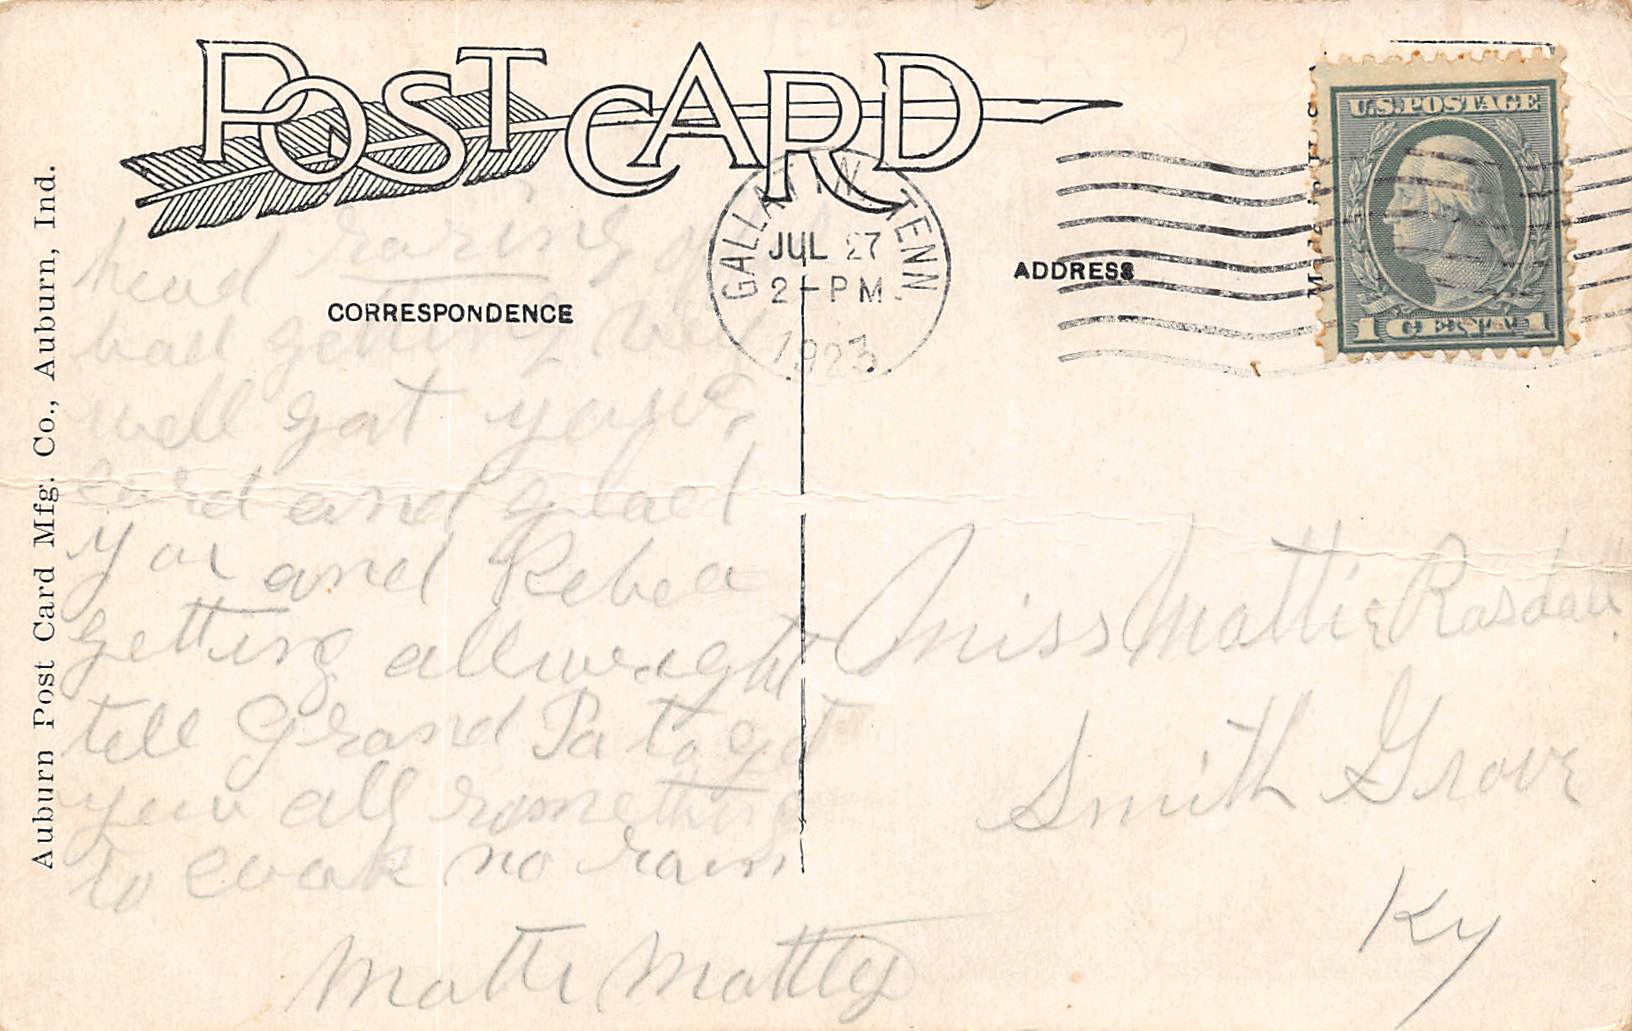 POST CARD
U.S. POSTAGE
1 CENT 1
GALLATIN TENN
JUL 27
2-PM
1923
Made in U.S.
ADDRESS
CORRESPONDENCE
Auburn Post Card Mfg. Co., Auburn, Ind.
head
bad getting
well got your
card and glad
you and Rebea
getting allwright
tell Grand Pa to get
you all something
to cook no rain
Miss Mattie Rasdall
Smith Grove
Ky